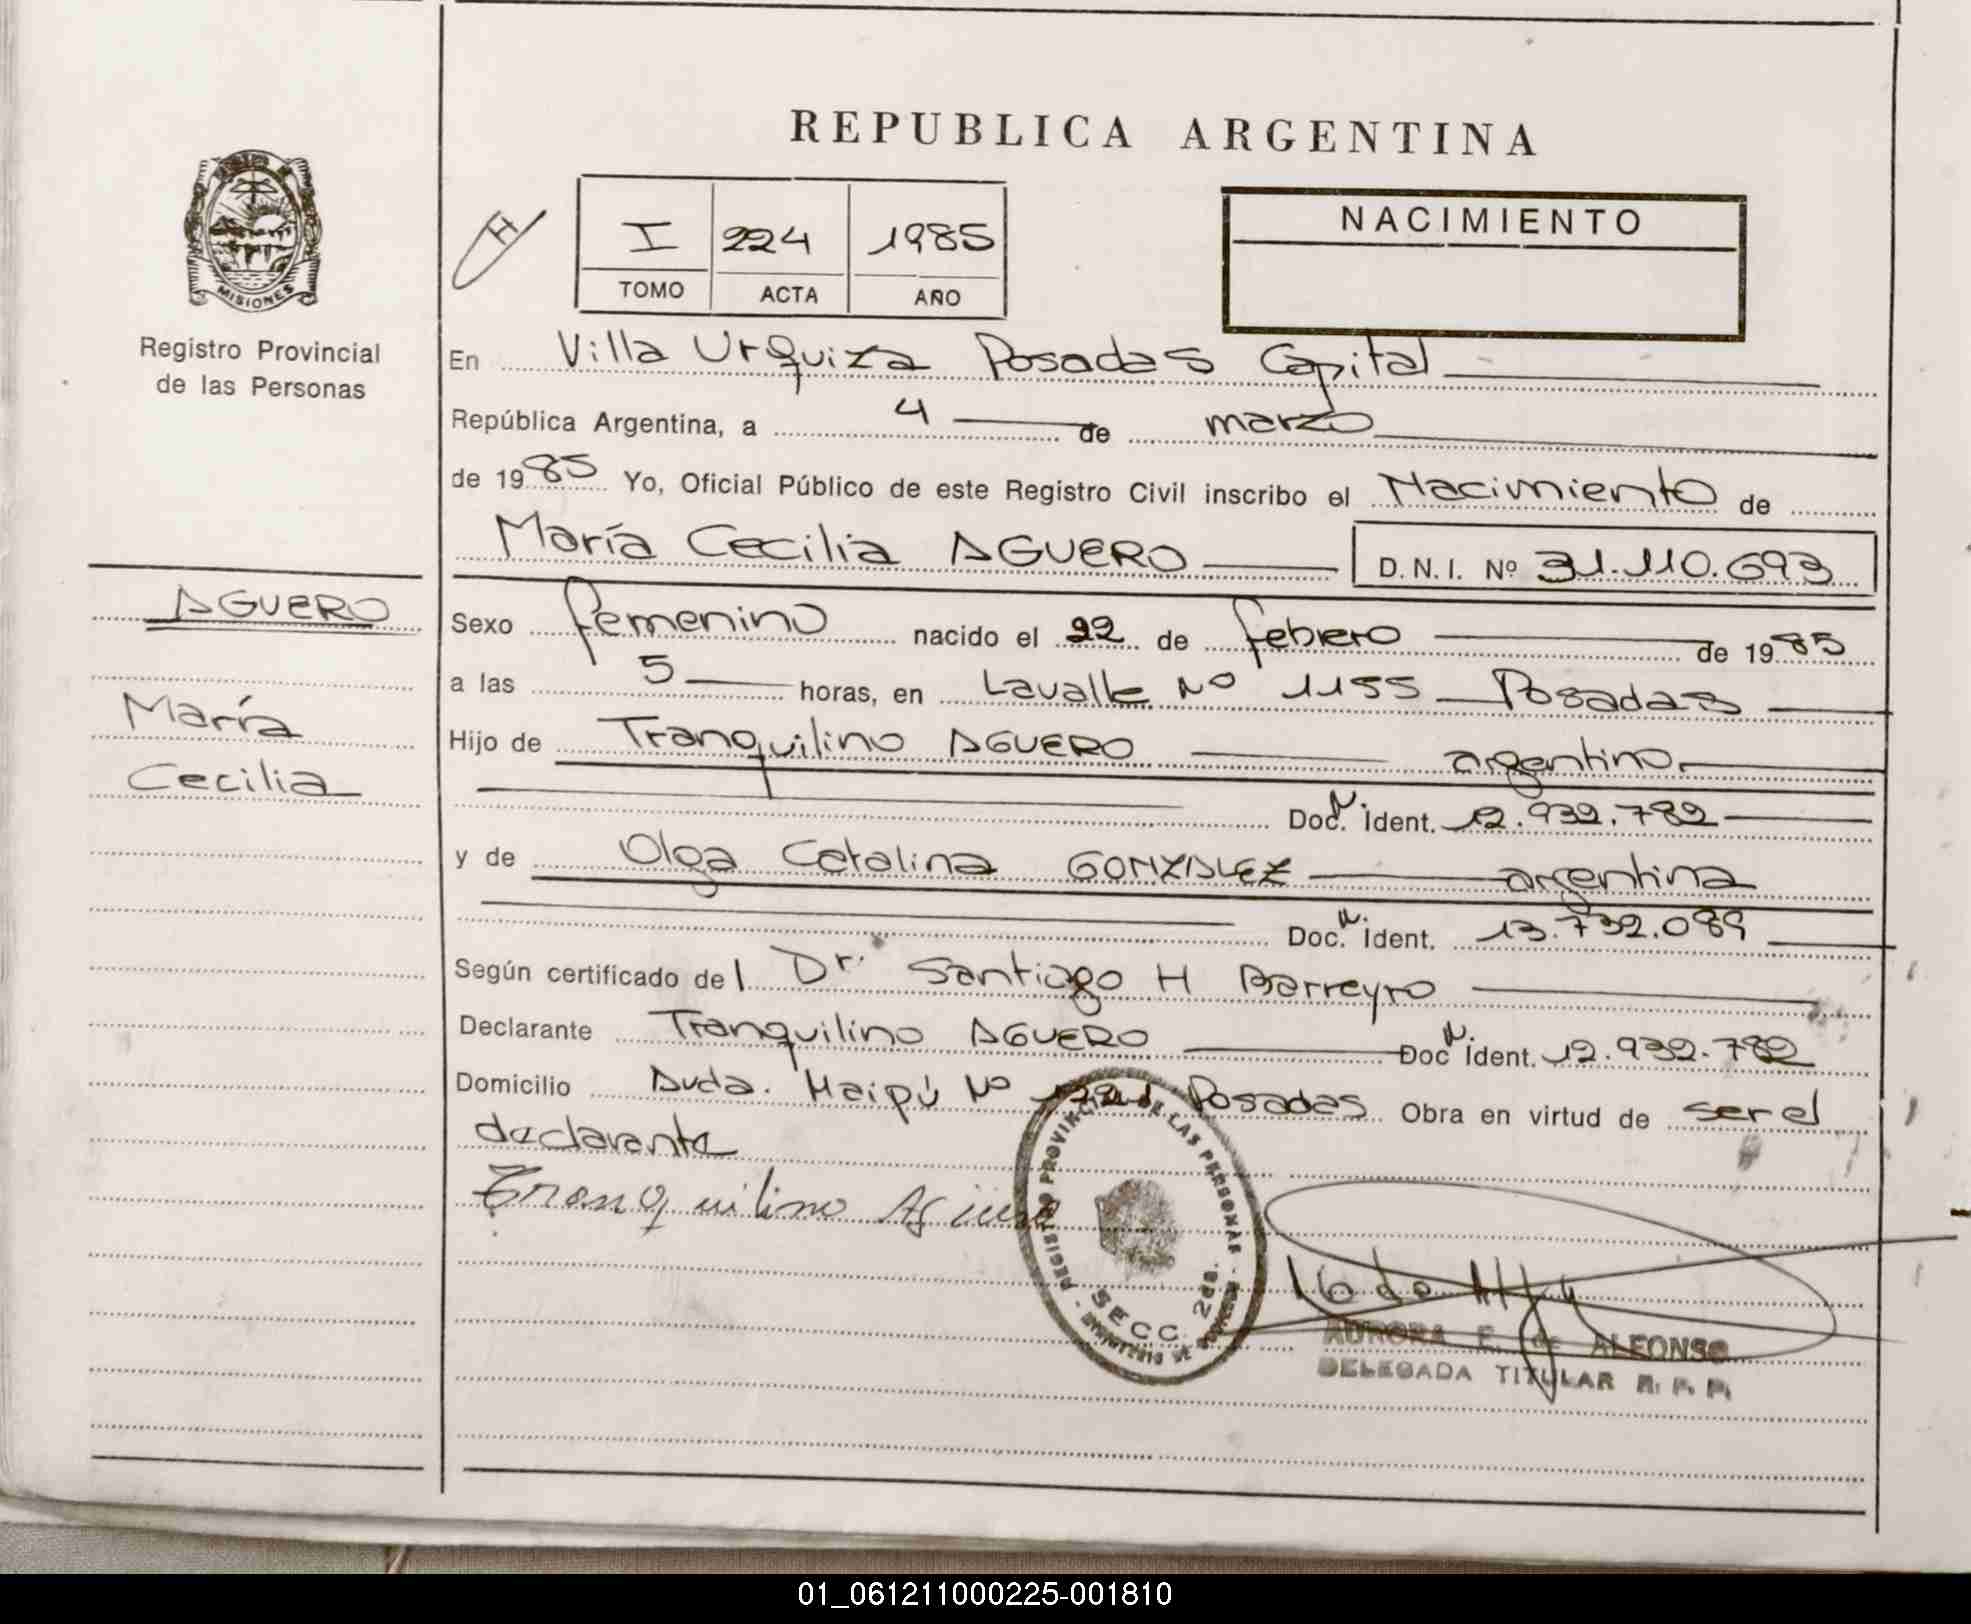 REPUBLICA ARGENTINA
MISIONES
Registro Provincial
de las Personas
H
I 224 1985
TOMO ACTA AÑO
NACIMIENTO
En Villa Urquiza Posadas Capital
República Argentina, a 4 de marzo
de 1985 Yo, Oficial Público de este Registro Civil inscribo el Nacimiento de
María Cecilia AGUERO D.N.I. Nº 31.110.693
AGUERO
María
Cecilia
Sexo femenino nacido el 22 de febrero de 1985
a las 5 horas, en Lavalle Nº 1155 Posadas
Hijo de Tranquilino AGUERO argentino
Doc. N. Ident. 12.932.782
y de Olga Catalina GONZALEZ argentina
Doc. N. Ident. 13.732.089
Según certificado del Dr. Santiago H Barreyro
Declarante Tranquilino AGUERO Doc N. Ident. 12.932.782
Domicilio Avda. Maipú Nº Posadas Obra en virtud de ser el
declarante
Tranquilino Agüero
REGISTRO PROVINCIAL DE LAS PERSONAS
SECC. 2da.
MINISTERIO DE GOBIERNO
AURORA E. de ALFONSO
DELEGADA TITULAR R. P. P.
01_061211000225-001810